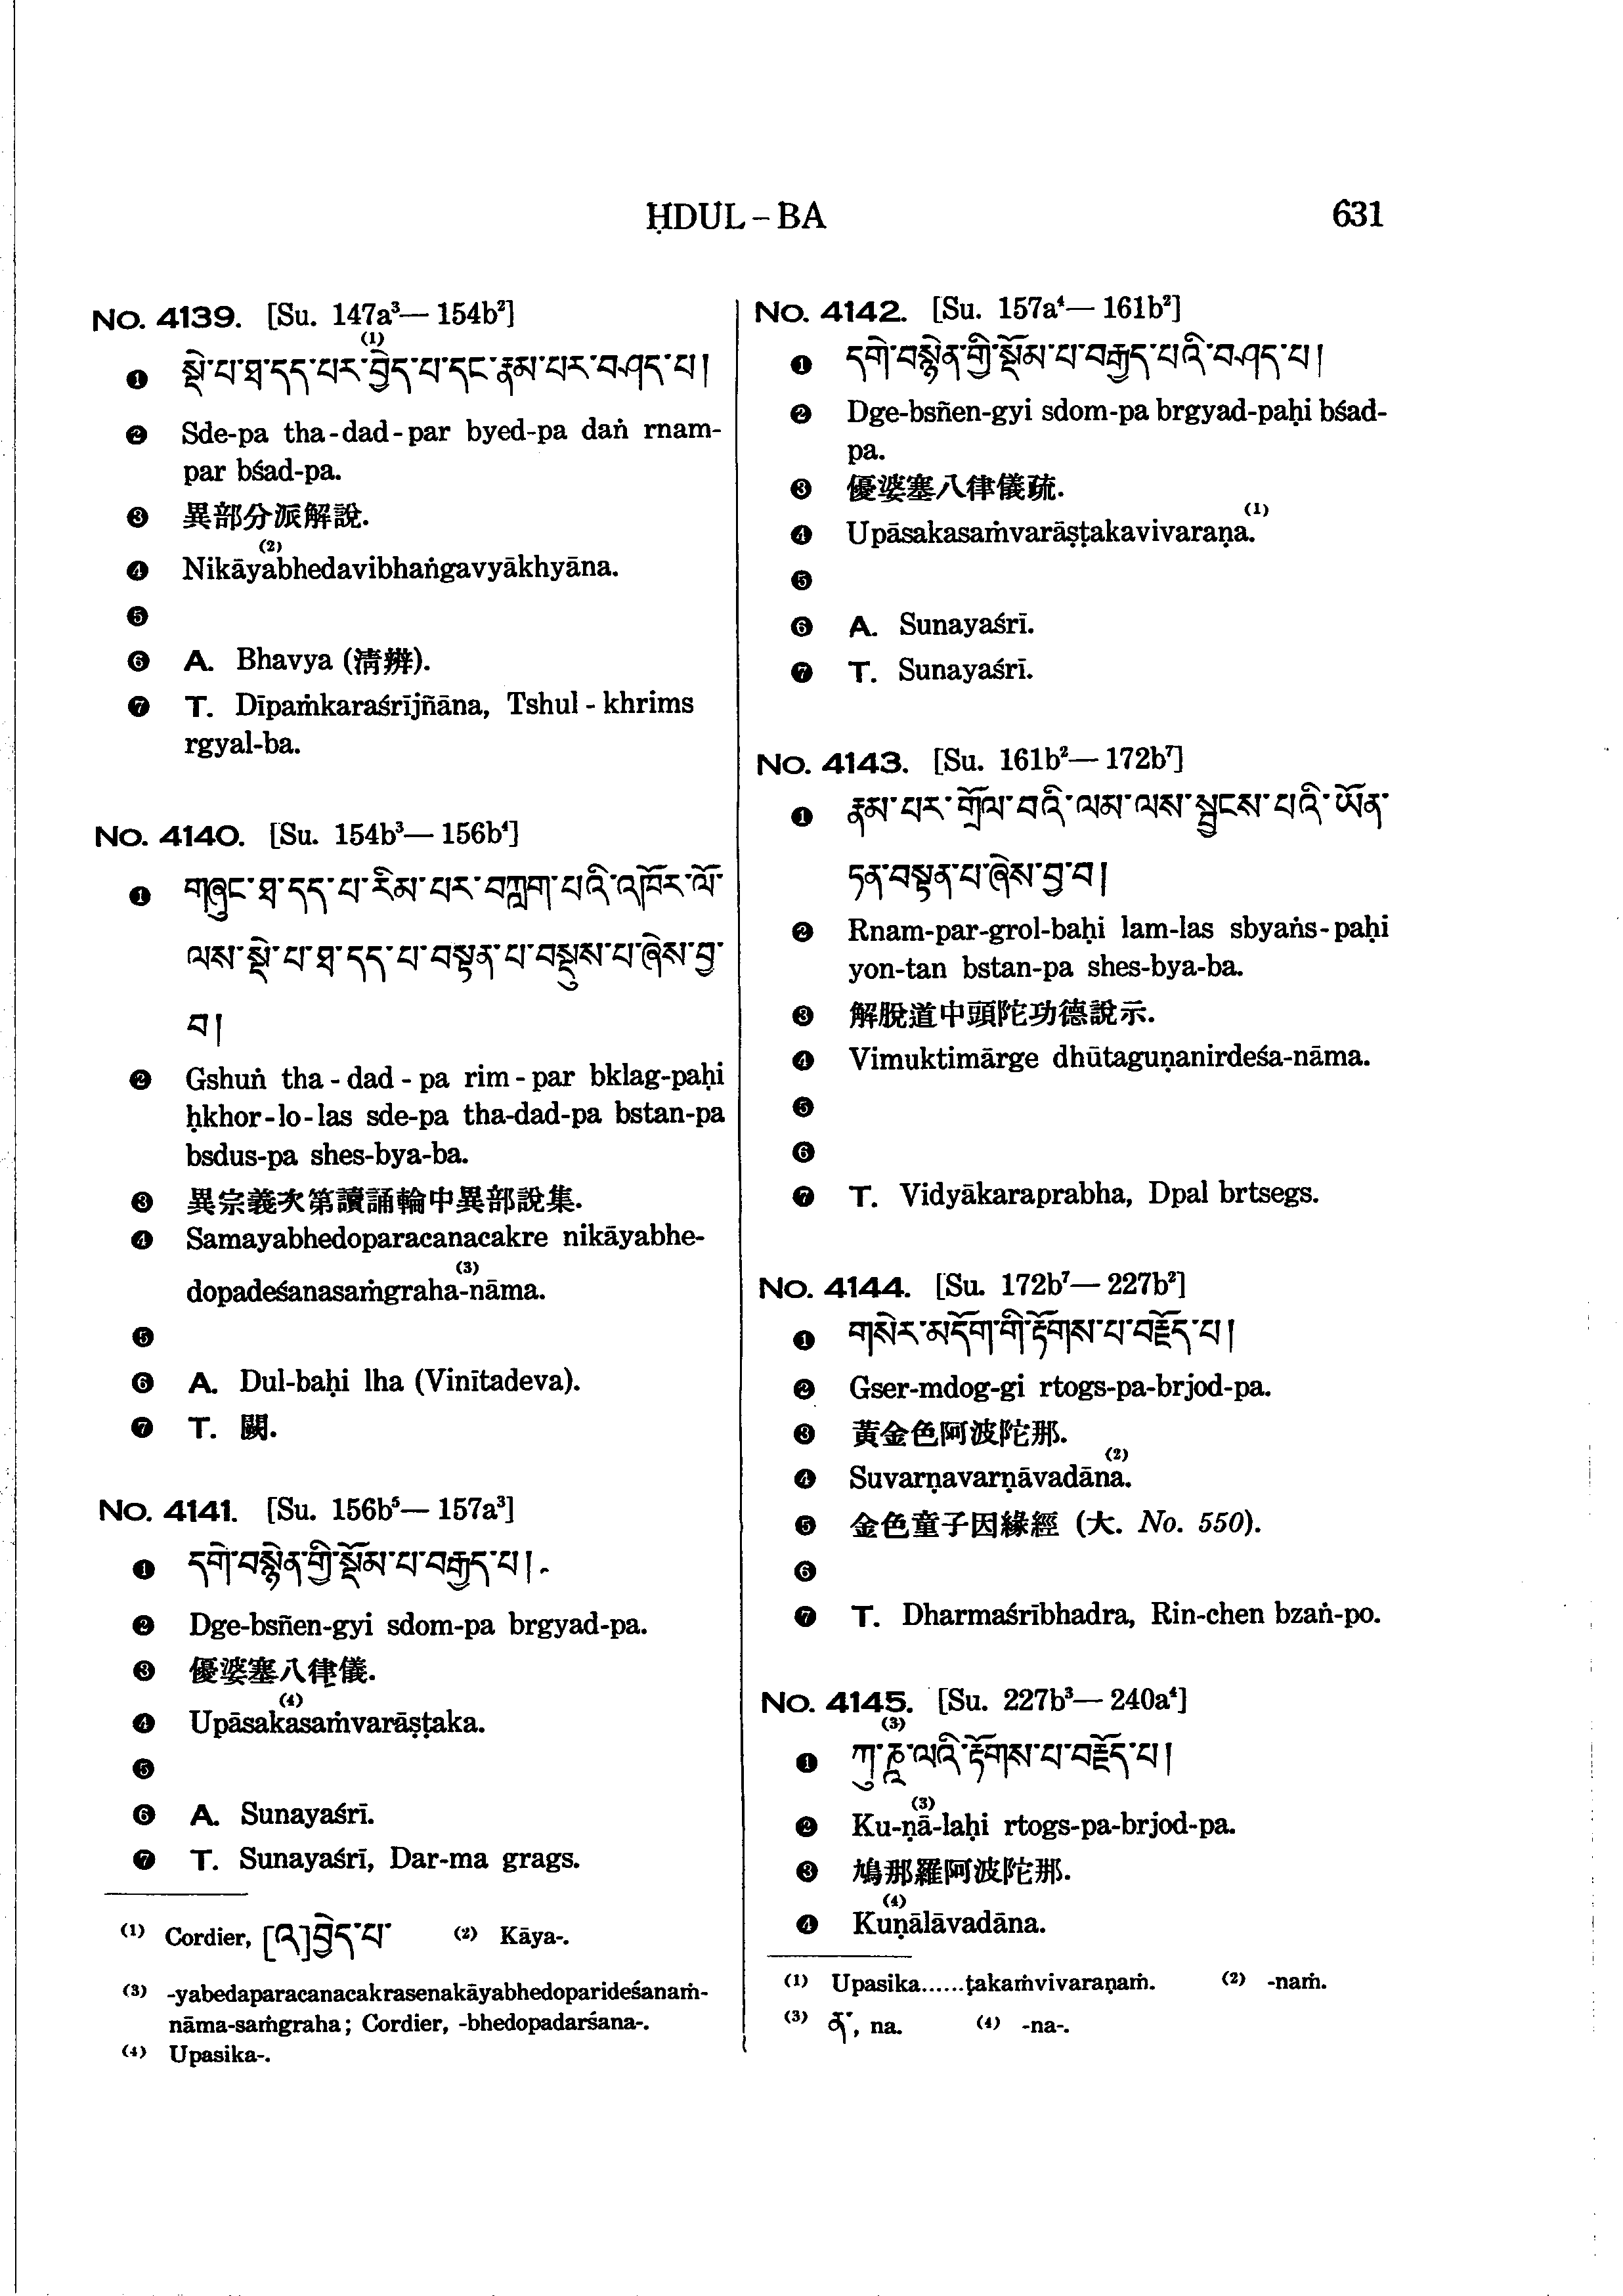 ḤDUL – BA
631
No. 4139. [Su. 147a³— 154b²]
(1)
❶ སྡེ་པ་ཐ་དད་པར་བྱེད་པ་དང་རྣམ་པར་བཤད་པ།
❷ Sde-pa tha-dad-par byed-pa daṅ rnam-
par bśad-pa.
❸ 異部分派解說.
(2)
❹ Nikāyabhedavibhaṅgavyākhyāna.
❺
❻ A. Bhavya (清辨).
❼ T. Dīpaṁkaraśrījñāna, Tshul-khrims
rgyal-ba.
No. 4140. [Su. 154b³— 156b⁴]
❶ གཞུང་ཐ་དད་པ་རིམ་པར་བཀླག་པའི་འཁོར་ལོ་
ལས་སྡེ་པ་ཐ་དད་པ་བསྟན་པ་བསྡུས་པ་ཞེས་བྱ་
བ།
❷ Gshuṅ tha-dad-pa rim-par bklag-paḥi
ḥkhor-lo-las sde-pa tha-dad-pa bstan-pa
bsdus-pa shes-bya-ba.
❸ 異宗義次第讀誦輪中異部說集.
❹ Samayabhedoparacanacakre nikāyabhe-
(3)
dopadeśanasaṁgraha-nāma.
❺
❻ A. Dul-baḥi lha (Vinītadeva).
❼ T. 闕.
No. 4141. [Su. 156b⁵— 157a³]
❶ དགེ་བསྙེན་གྱི་སྡོམ་པ་བརྒྱད་པ།
❷ Dge-bsñen-gyi sdom-pa brgyad-pa.
❸ 優婆塞八律儀.
(4)
❹ Upāsakasaṁvarāṣṭaka.
❺
❻ A. Sunayaśrī.
❼ T. Sunayaśrī, Dar-ma grags.
(1) Cordier, [འ]བྱེད་པ་ (2) Kāya-.
(3) -yabedaparacanacakrasenakāyabhedoparideśanaṁ-
nāma-saṁgraha; Cordier, -bhedopadarśana-.
(4) Upasika-.
No. 4142. [Su. 157a⁴— 161b²]
❶ དགེ་བསྙེན་གྱི་སྡོམ་པ་བརྒྱད་པའི་བཤད་པ།
❷ Dge-bsñen-gyi sdom-pa brgyad-paḥi bśad-
pa.
❸ 優婆塞八律儀疏.
(1)
❹ Upāsakasaṁvarāṣṭakavivaraṇa.
❺
❻ A. Sunayaśrī.
❼ T. Sunayaśrī.
No. 4143. [Su. 161b²— 172b⁷]
❶ རྣམ་པར་གྲོལ་བའི་ལམ་ལས་སྦྱངས་པའི་ཡོན་
ཏན་བསྟན་པ་ཞེས་བྱ་བ།
❷ Rnam-par-grol-baḥi lam-las sbyaṅs-paḥi
yon-tan bstan-pa shes-bya-ba.
❸ 解脫道中頭陀功德說示.
❹ Vimuktimārge dhūtaguṇanirdeśa-nāma.
❺
❻
❼ T. Vidyākaraprabha, Dpal brtsegs.
No. 4144. [Su. 172b⁷— 227b²]
❶ གསེར་མདོག་གི་རྟོགས་པ་བརྗོད་པ།
❷ Gser-mdog-gi rtogs-pa-brjod-pa.
❸ 黃金色阿波陀那.
(2)
❹ Suvarṇavarṇāvadāna.
❺ 金色童子因緣經 (大. No. 550).
❻
❼ T. Dharmaśrībhadra, Rin-chen bzaṅ-po.
No. 4145. [Su. 227b³— 240a⁴]
(3)
❶ ཀུ་ཎཱ་ལའི་རྟོགས་པ་བརྗོད་པ།
(3)
❷ Ku-ṇā-laḥi rtogs-pa-brjod-pa.
❸ 鳩那羅阿波陀那.
(4)
❹ Kuṇālāvadāna.
(1) Upasika......ṭakaṁvivaraṇaṁ. (2) -naṁ.
(3) ན་, na. (4) -na-.